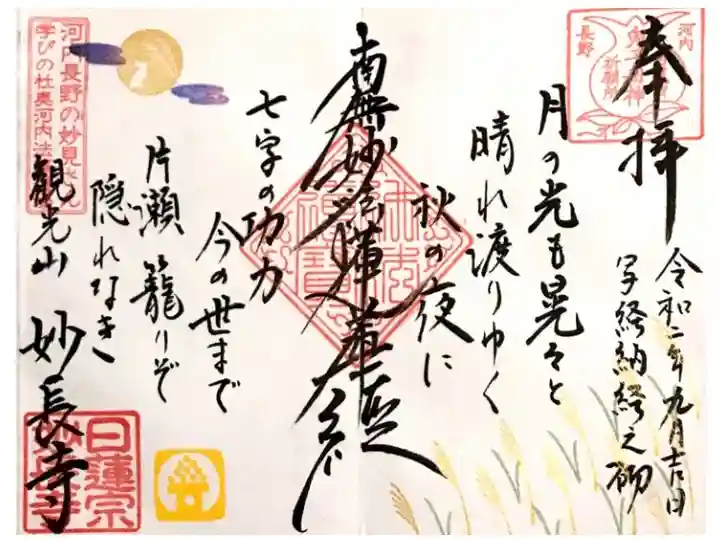 河内
長野
祈願所
奉拝
令和二年九月吉日
写経納経之砌
月の光も晃々と
晴れ渡りゆく
秋の夜に
南無妙法蓮華経
七字の功力
今の世まで
片瀬籠りぞ
隠れなき
観光山 妙長寺
河内長野の妙見さん
学びの杜奥河内法
日蓮宗
妙長寺